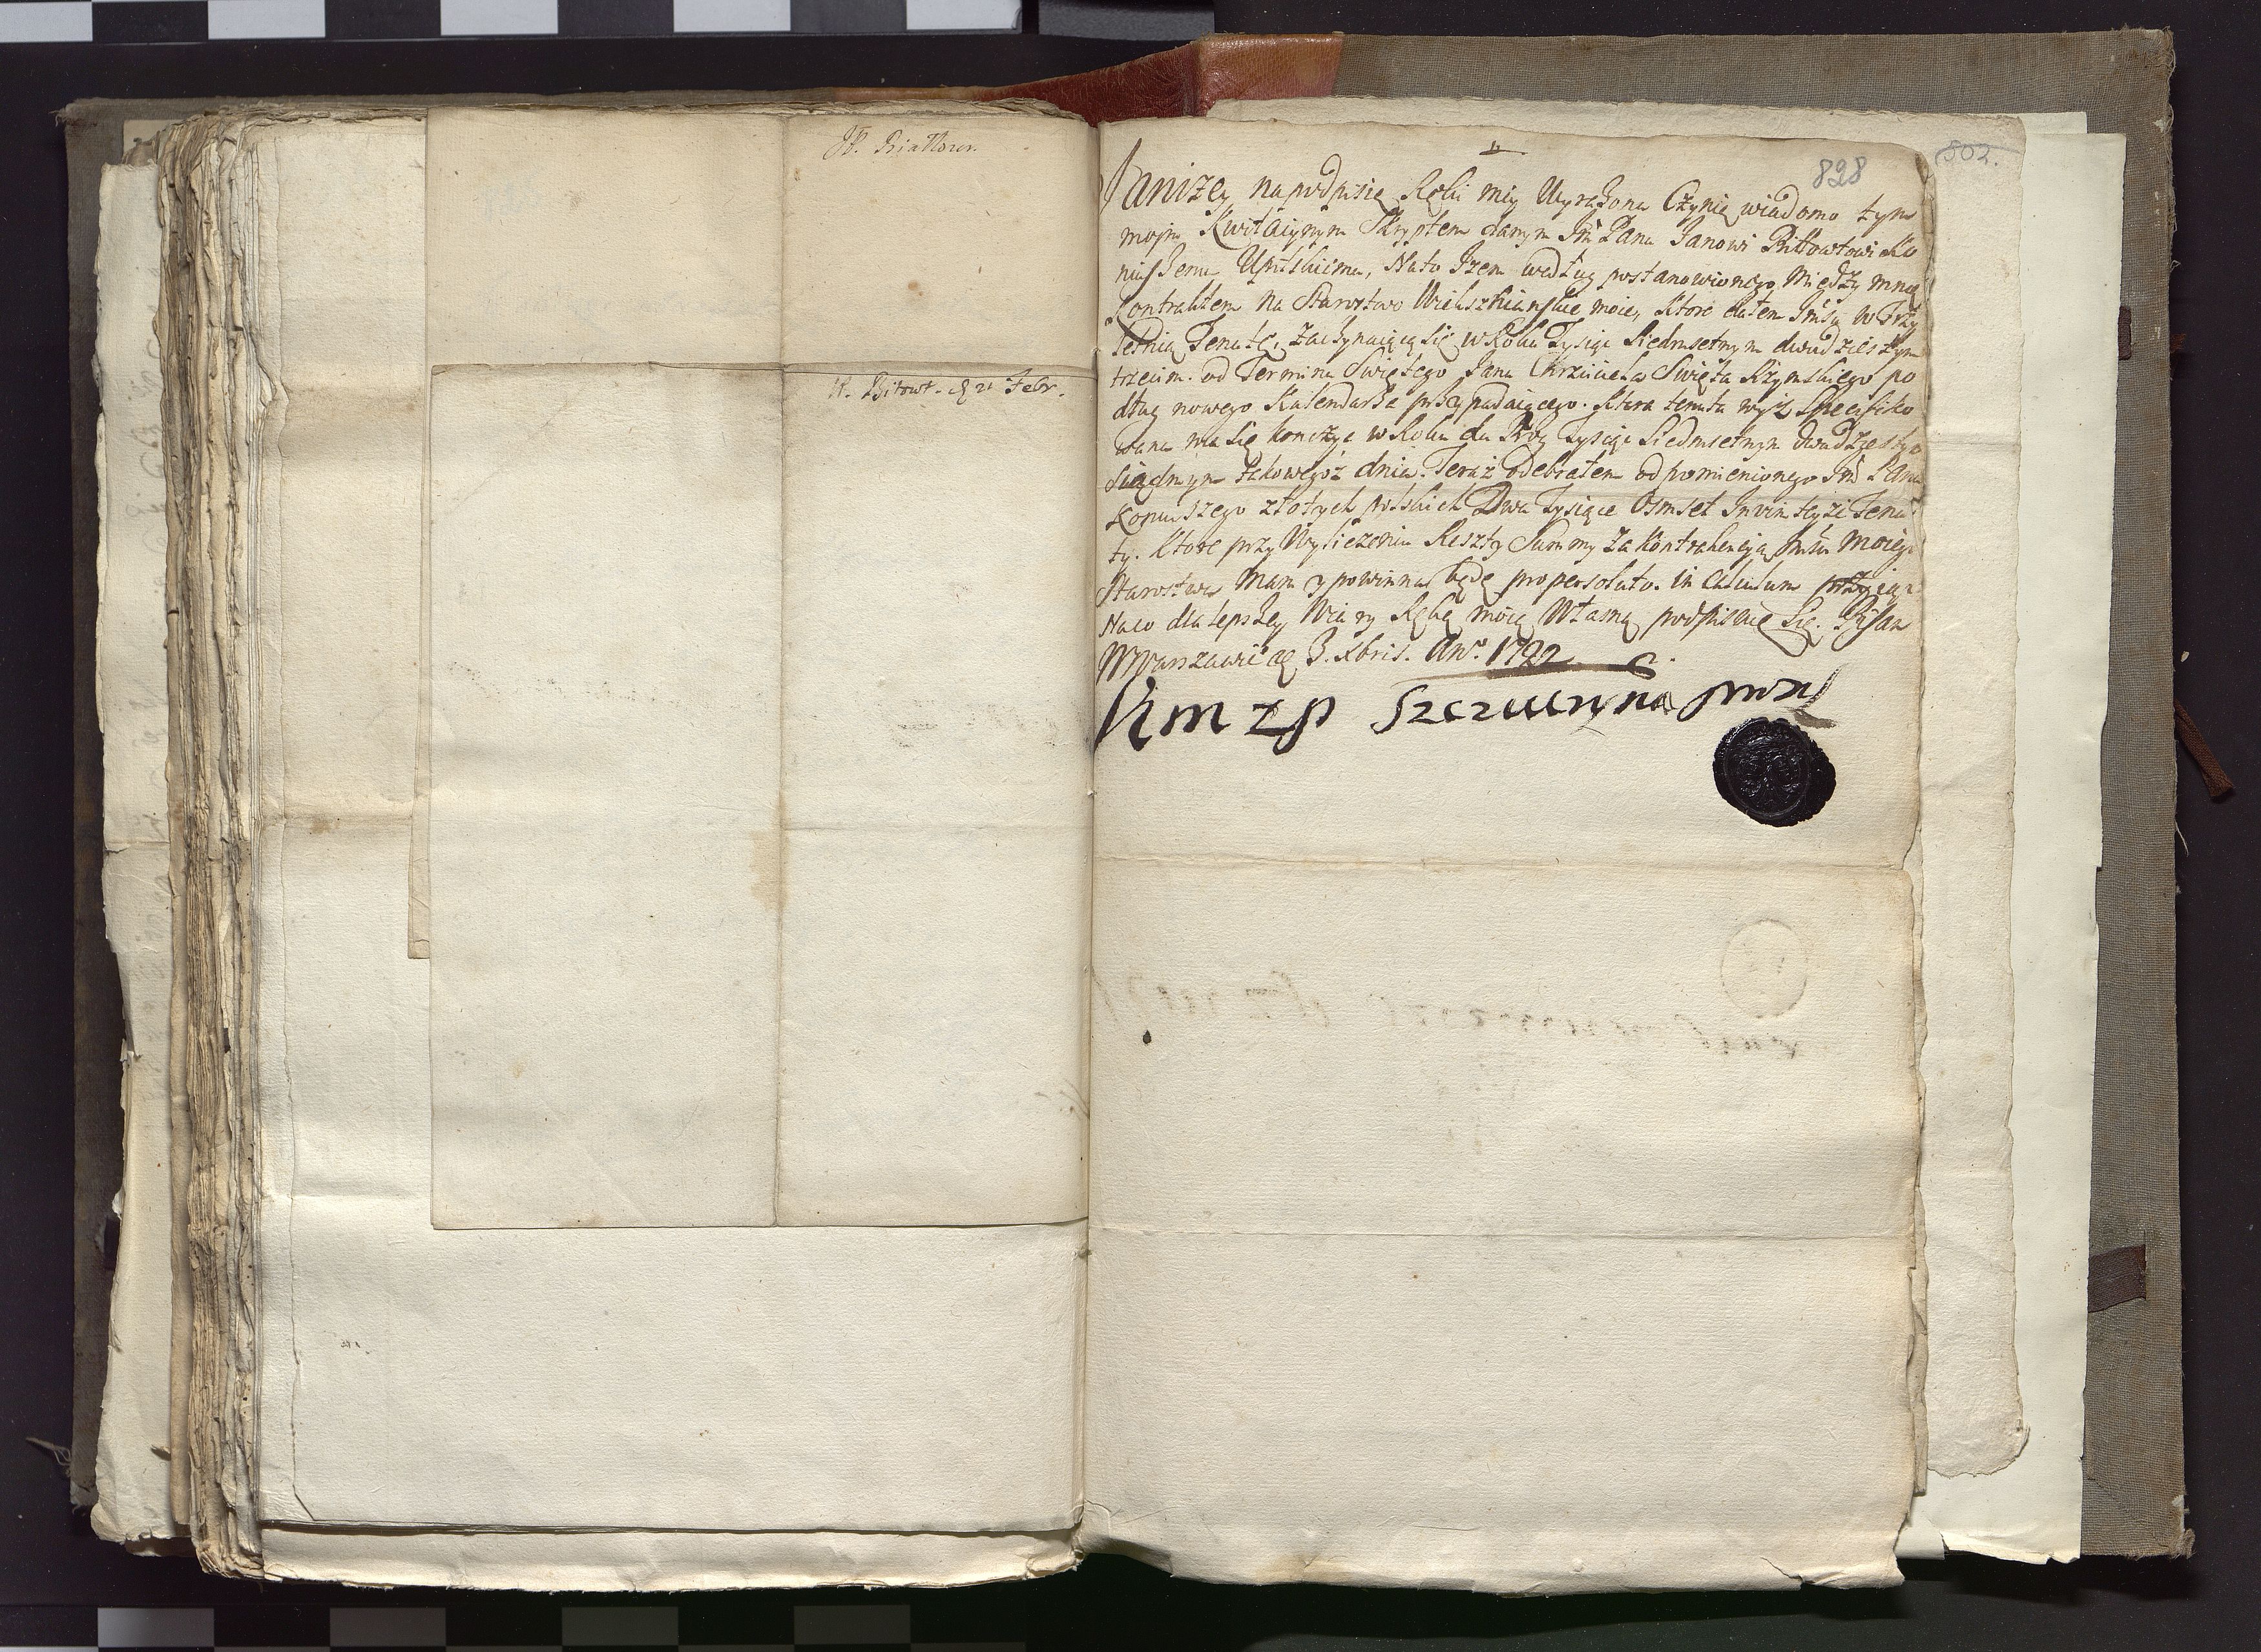 JP. Białłozor.
P. Bitowt. d 21 Febr.
828
802.
Ja niżey na podpisie Ręki mey Wyrażona Czynię wiadomo tym
moym Kwitacijnym Skryptem danym Jm Panu Janowi Bittowtowi Ko
niuszemu Upitskiemu, Na to Jżem według postanowionego Między mną
Kontraktem na Starostwo Wiekszniańskie moie, Ktore dałem Jmsci w Trzy
letnią Tenutę, zaczynaiącą się w Roku Tysiąc Siedmsetnym dwudziestym
trzecim. od Termina Swiętego Jana Chrzciciela Swięta Rzymskiego po
dług nowego Kalendarza przypadaiącego. Ktora tenuta wyż Specifiko
wana ma się kończyc w Roku da Bog Tysiąc Siedmsetnym dwudziestym
Siedmym takowegoż dnia. Teraz Odebrałem od pomienionego Jm Pana
Koniuszego złotych polskich Dwa Tysiące Osmset In vim teyże Tenu
ty. Ktore przy Wyliczeniu Reszty Summy za Kontrahencją moiego
Starostwa Mam y powinna będę pro persoluto. in Calculum przyiąc.
Na co dla lepszey Wiary Ręką moią Własną podpisuię Się. Pisan
W Warszawie d 3. Xbris. Ano. 1722
K m z p Szczuczyna